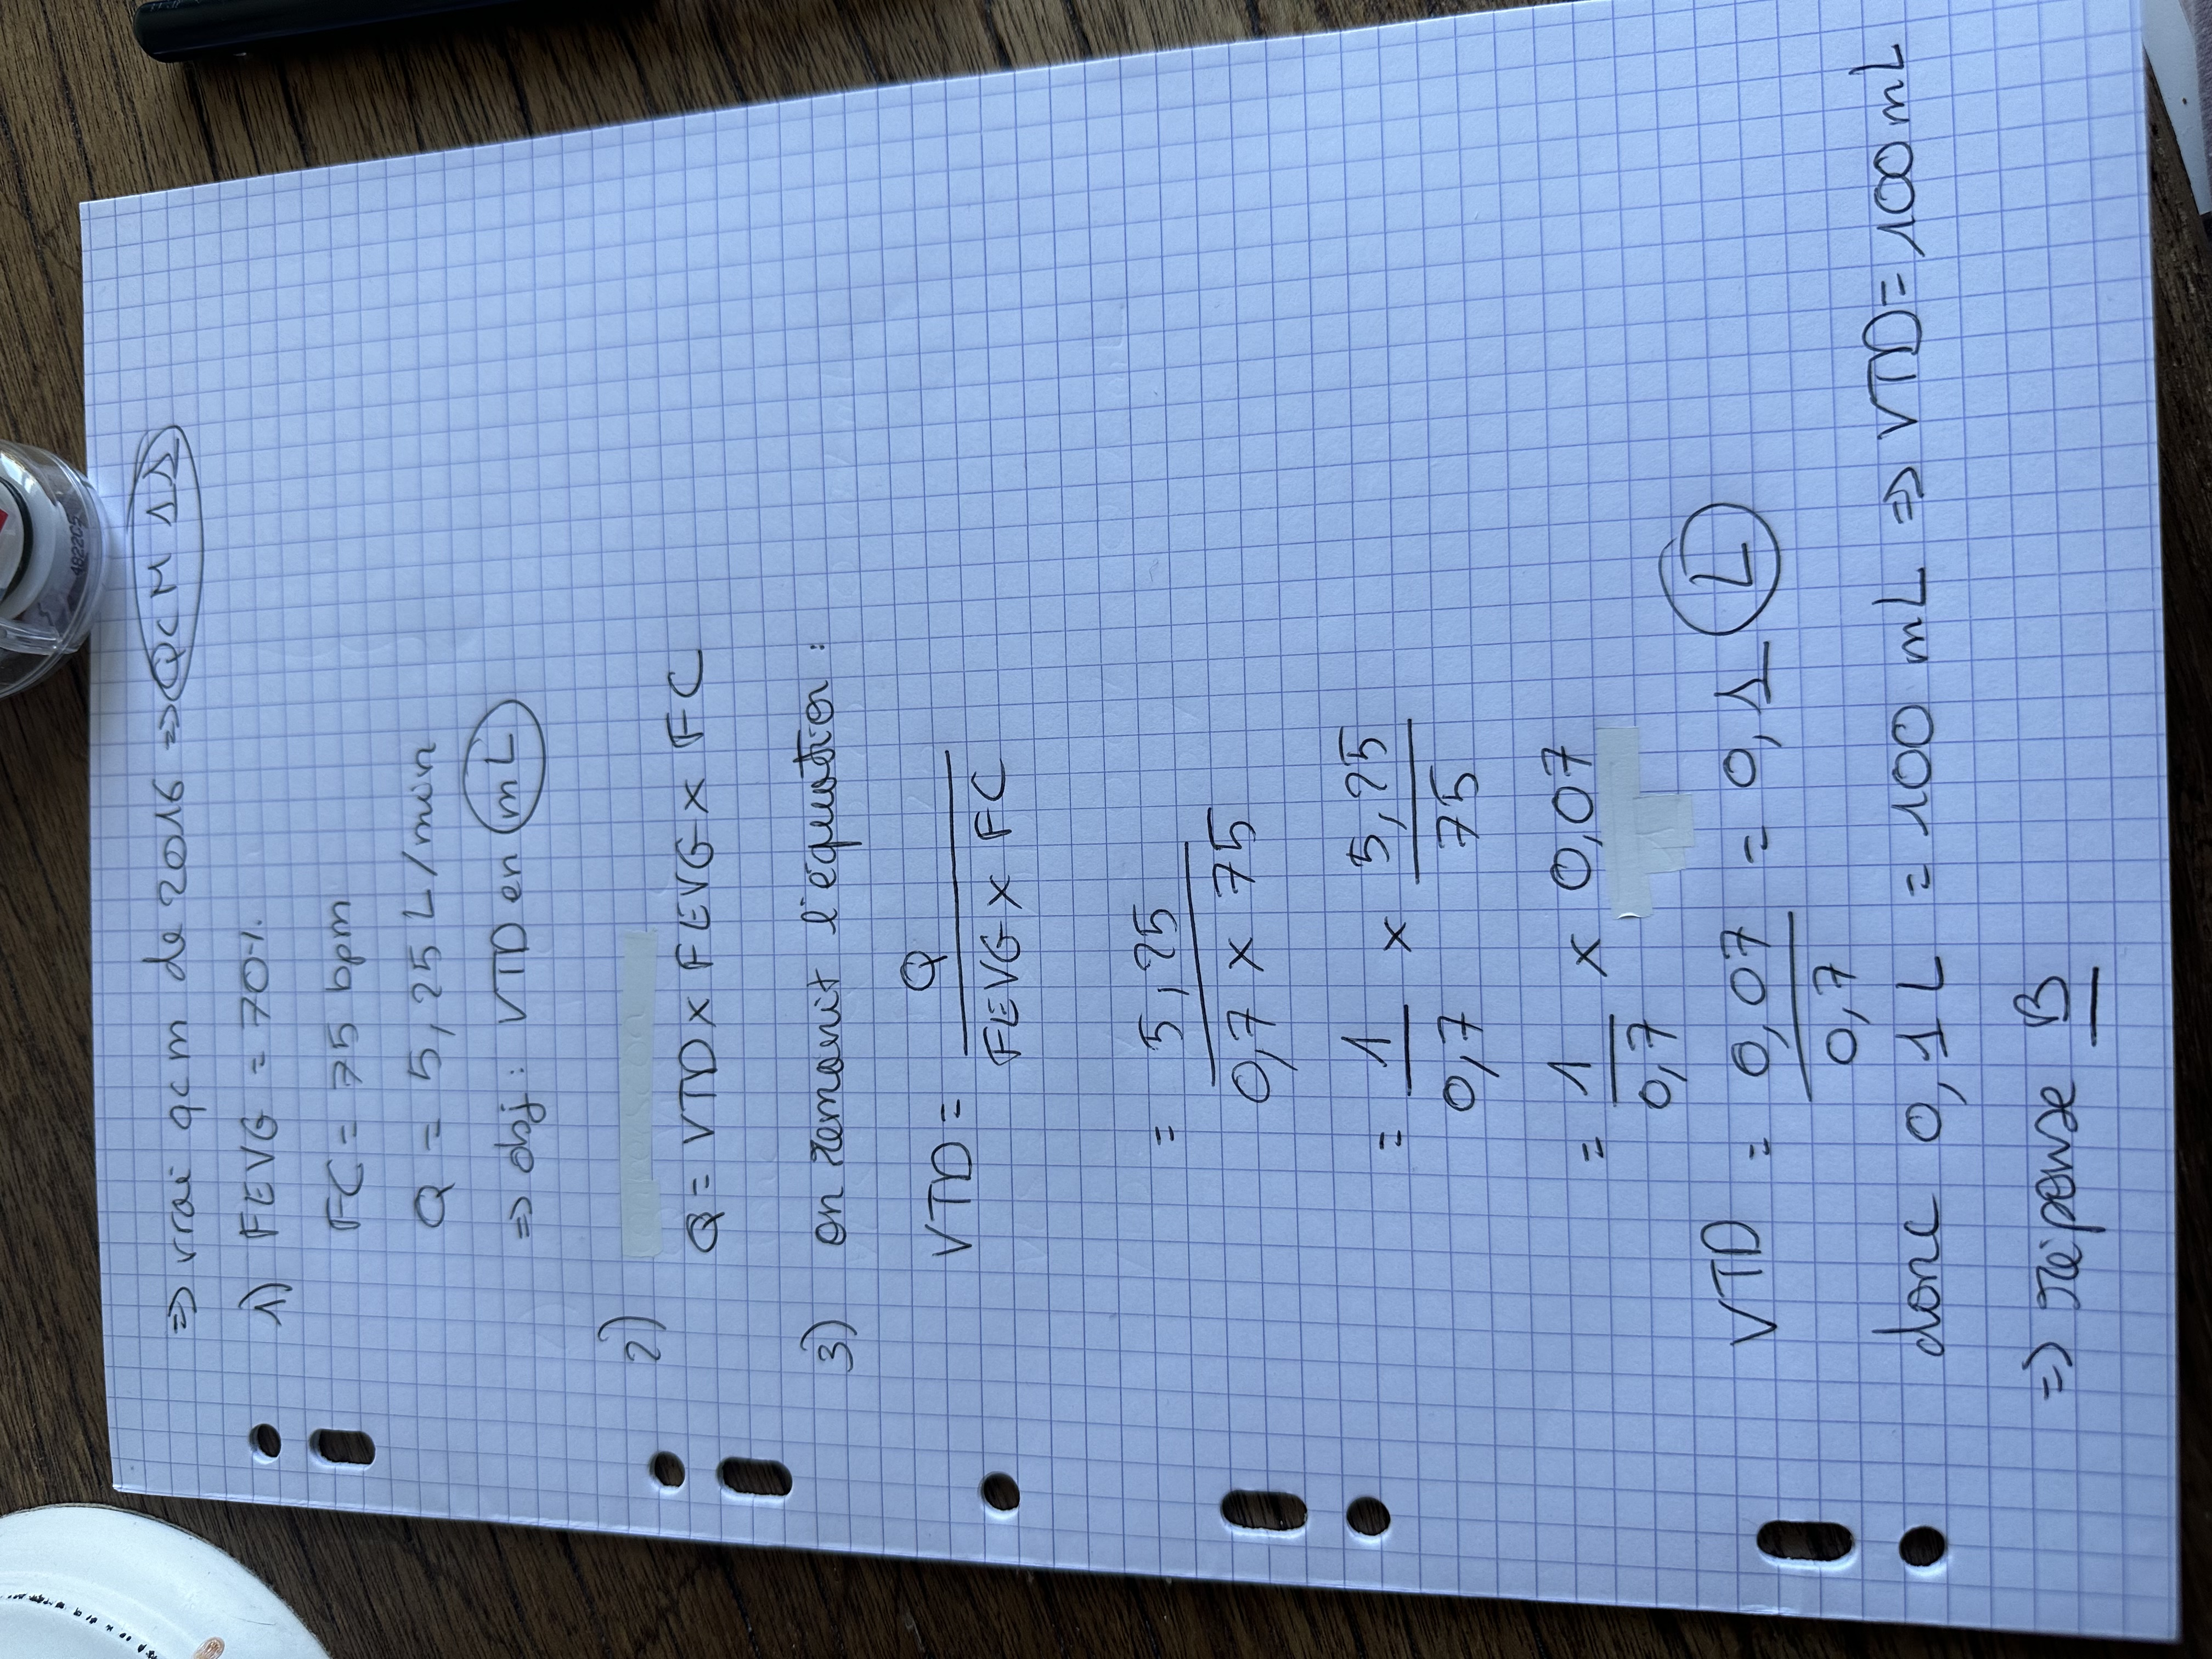 => vrai qcm de 2016 => QCM 11
1) FEVG = 70%
FC = 75 bpm
Q = 5,25 L/min
=> obj : VTD en mL
2)
Q = VTD x FEVG x FC
3) on remanit l'équation :
VTD = Q / FEVG x FC
= 5,25 / 0,7 x 75
= 1 / 0,7 x 5,25 / 75
= 1 / 0,7 x 0,07
VTD = 0,07 / 0,7 = 0,1 L
donc 0,1 L = 100 mL => VTD = 100 mL
=> réponse B
482205